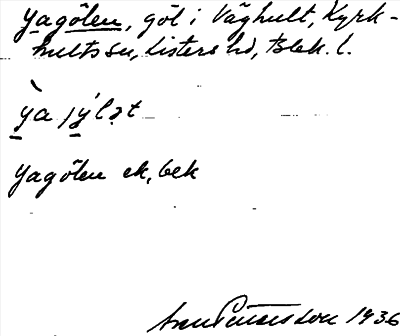 Yagölen, göl i Vághult, Kyrk-
hults sn, Listers hd, Blek. l.
ya jýlət
Yagölen ek, bek
1936